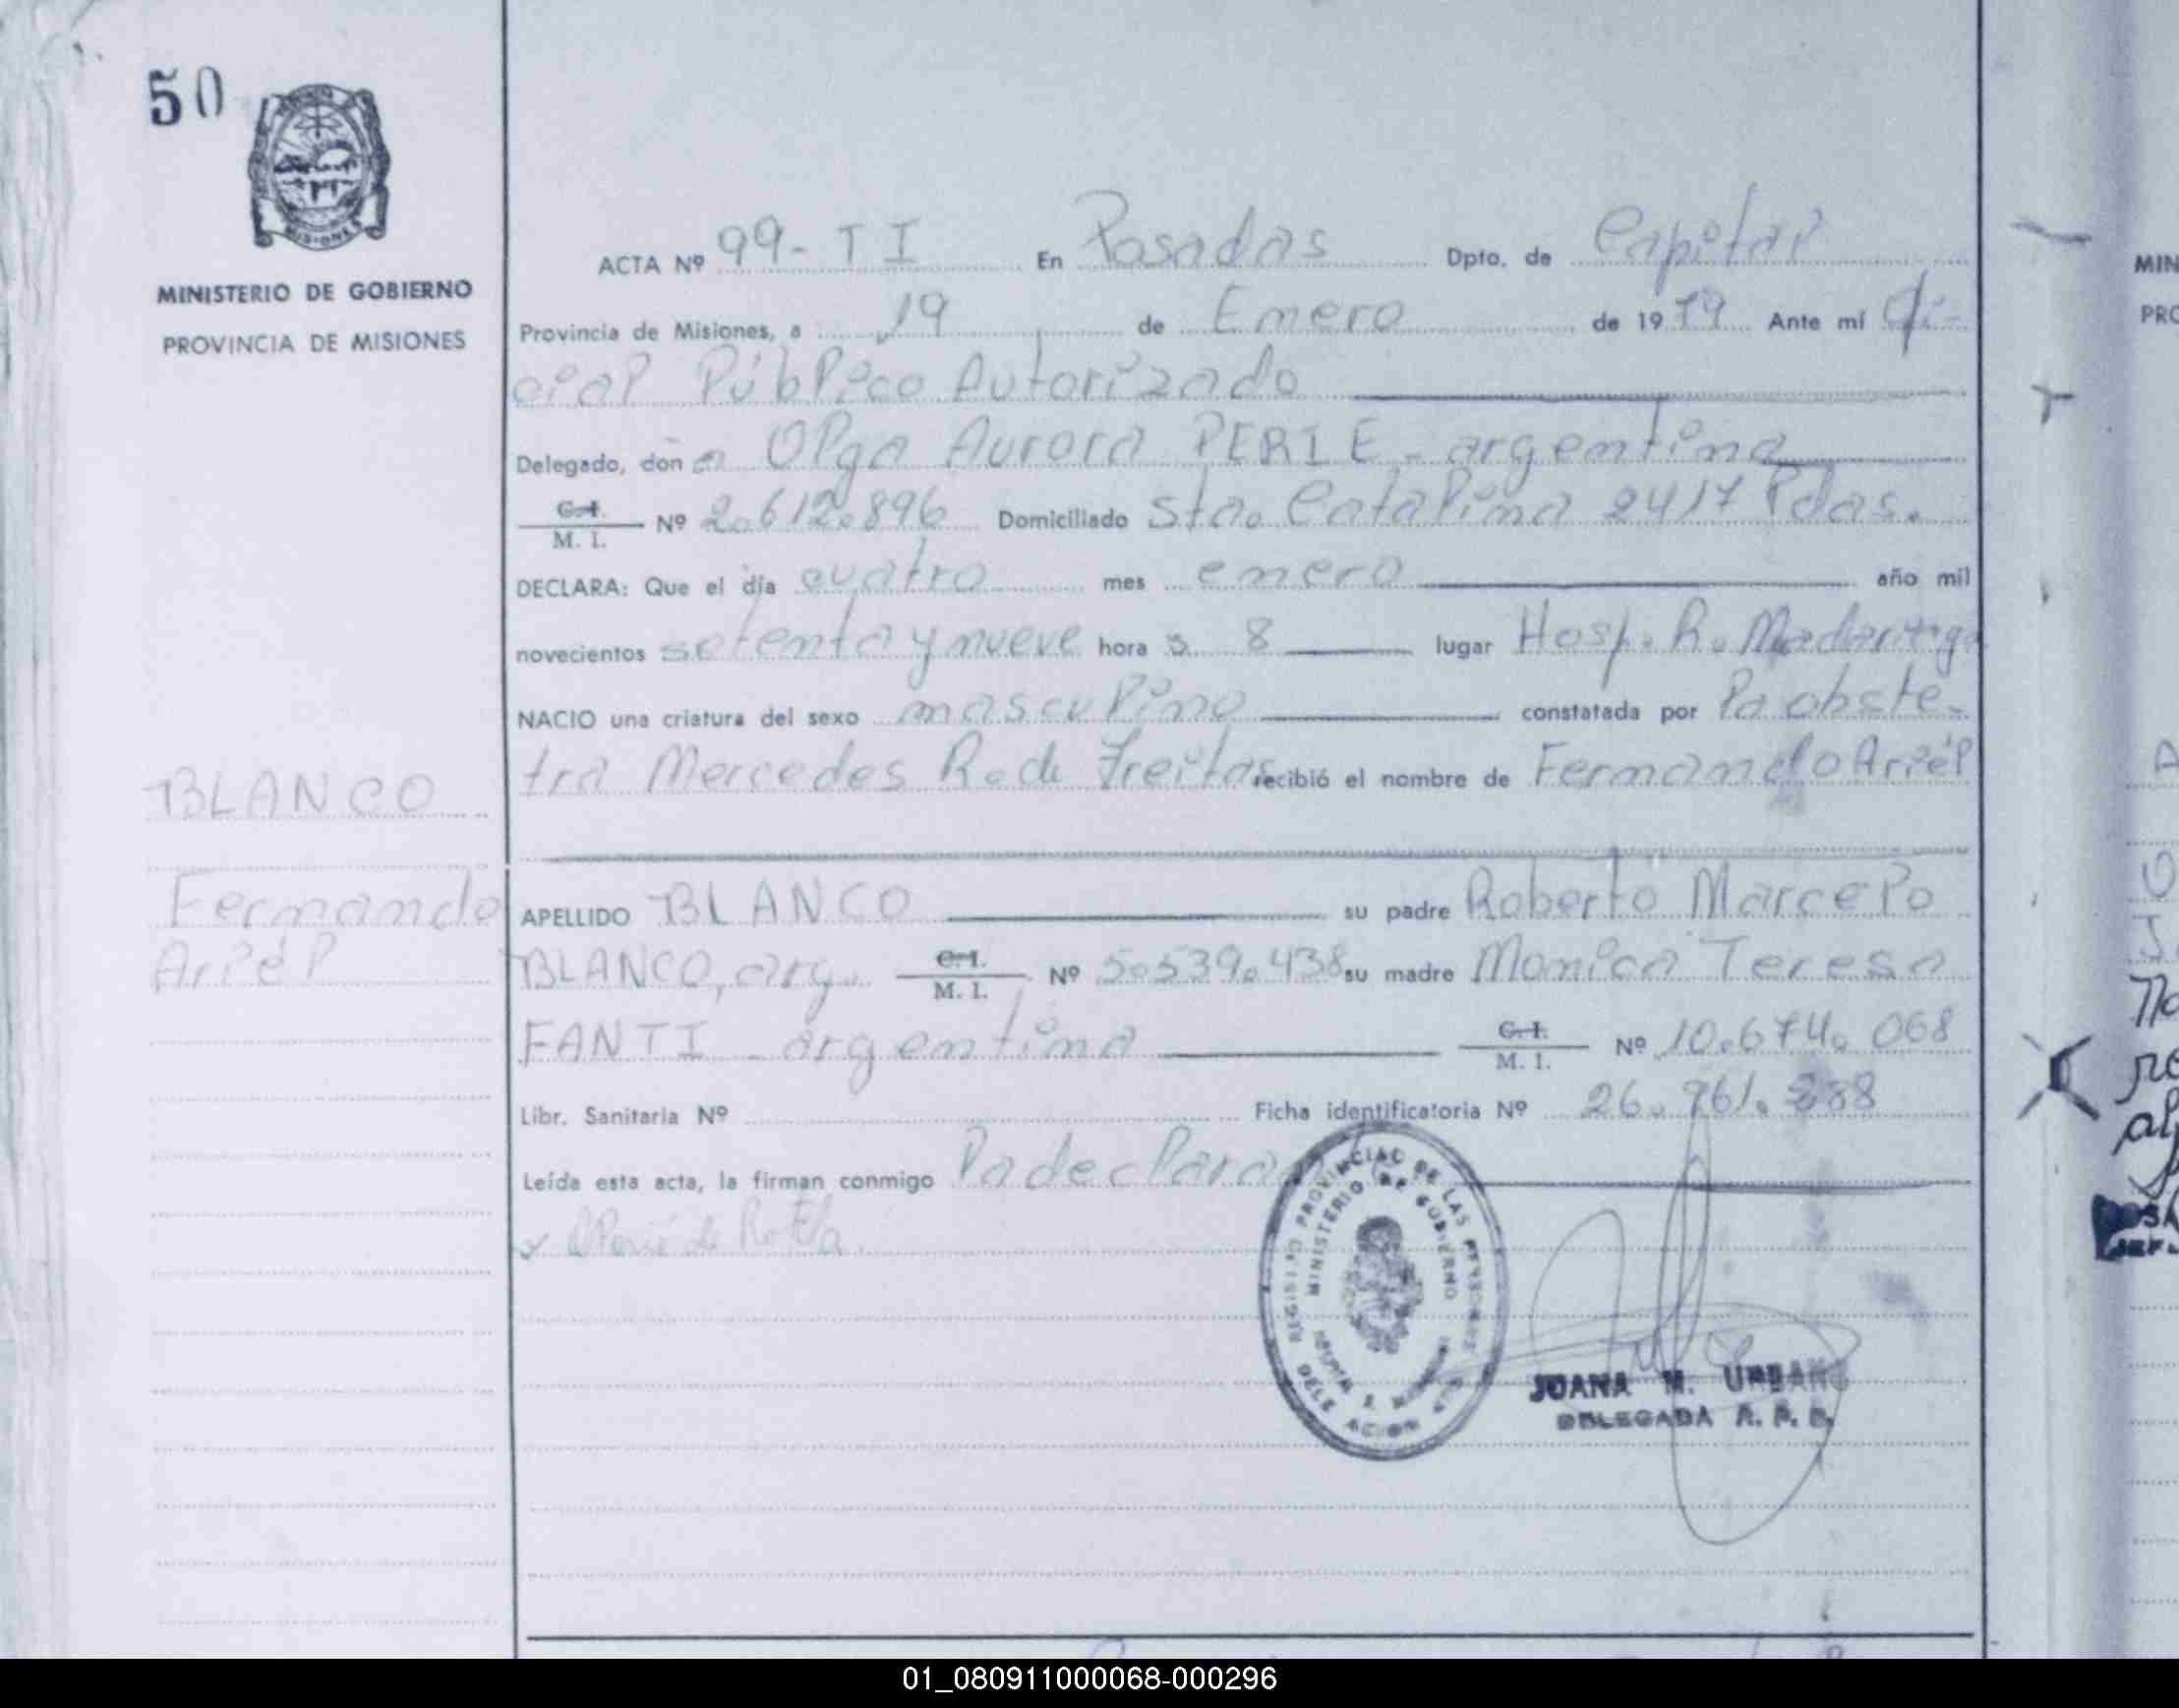 50
MINISTERIO DE GOBIERNO
PROVINCIA DE MISIONES
ACTA Nº 99-TI En Posadas Dpto. de Capital
Provincia de Misiones, a 19 de Enero de 1979 Ante mí Ofi-
cial Público Autorizado
Delegado, don a Olga Aurora PERIE - argentina
C.I. M. I. Nº 2.612.896 Domiciliado Sta. Catalina 2417 Pdas.
DECLARA: Que el día cuatro mes enero año mil
novecientos setenta y nueve hora s 8 lugar Hosp. R. Madariaga
NACIO una criatura del sexo masculino constatada por la obste-
tra Mercedes R. de Freitas recibió el nombre de Fernando Ariél
BLANCO
Fernando
Ariél
APELLIDO BLANCO su padre Roberto Marcelo
BLANCO, arg. C.I. M. I. Nº 5.539.438 su madre Monica Teresa
FANTI - argentina C.I. M. I. Nº 10.674.068
Libr. Sanitaria Nº Ficha identificatoria Nº 26.961.
Leída esta acta, la firman conmigo la declarante
REGISTRO PROVINCIAL DE LAS PERSONAS
MINISTERIO DE GOBIERNO
DELEGACION
JUANA M. URBANO
DELEGADA R. P. P.
MIN
PRO
01_080911000068-000296